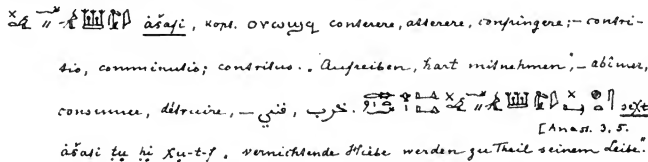 àšafi, kopt. ⲟⲩⲱϣϥ conterere, atterere, confringere; – contri-
tio, comminutio; contritus. „Aufreiben, hart mitnehmen", – abîmer,
consumer, détruire, – خرب, فني.
[Anast. 3, 5.
àšafi ṭu ḥi χu-t-f, „vernichtende Hiebe werden zu Theil seinem Leibe."